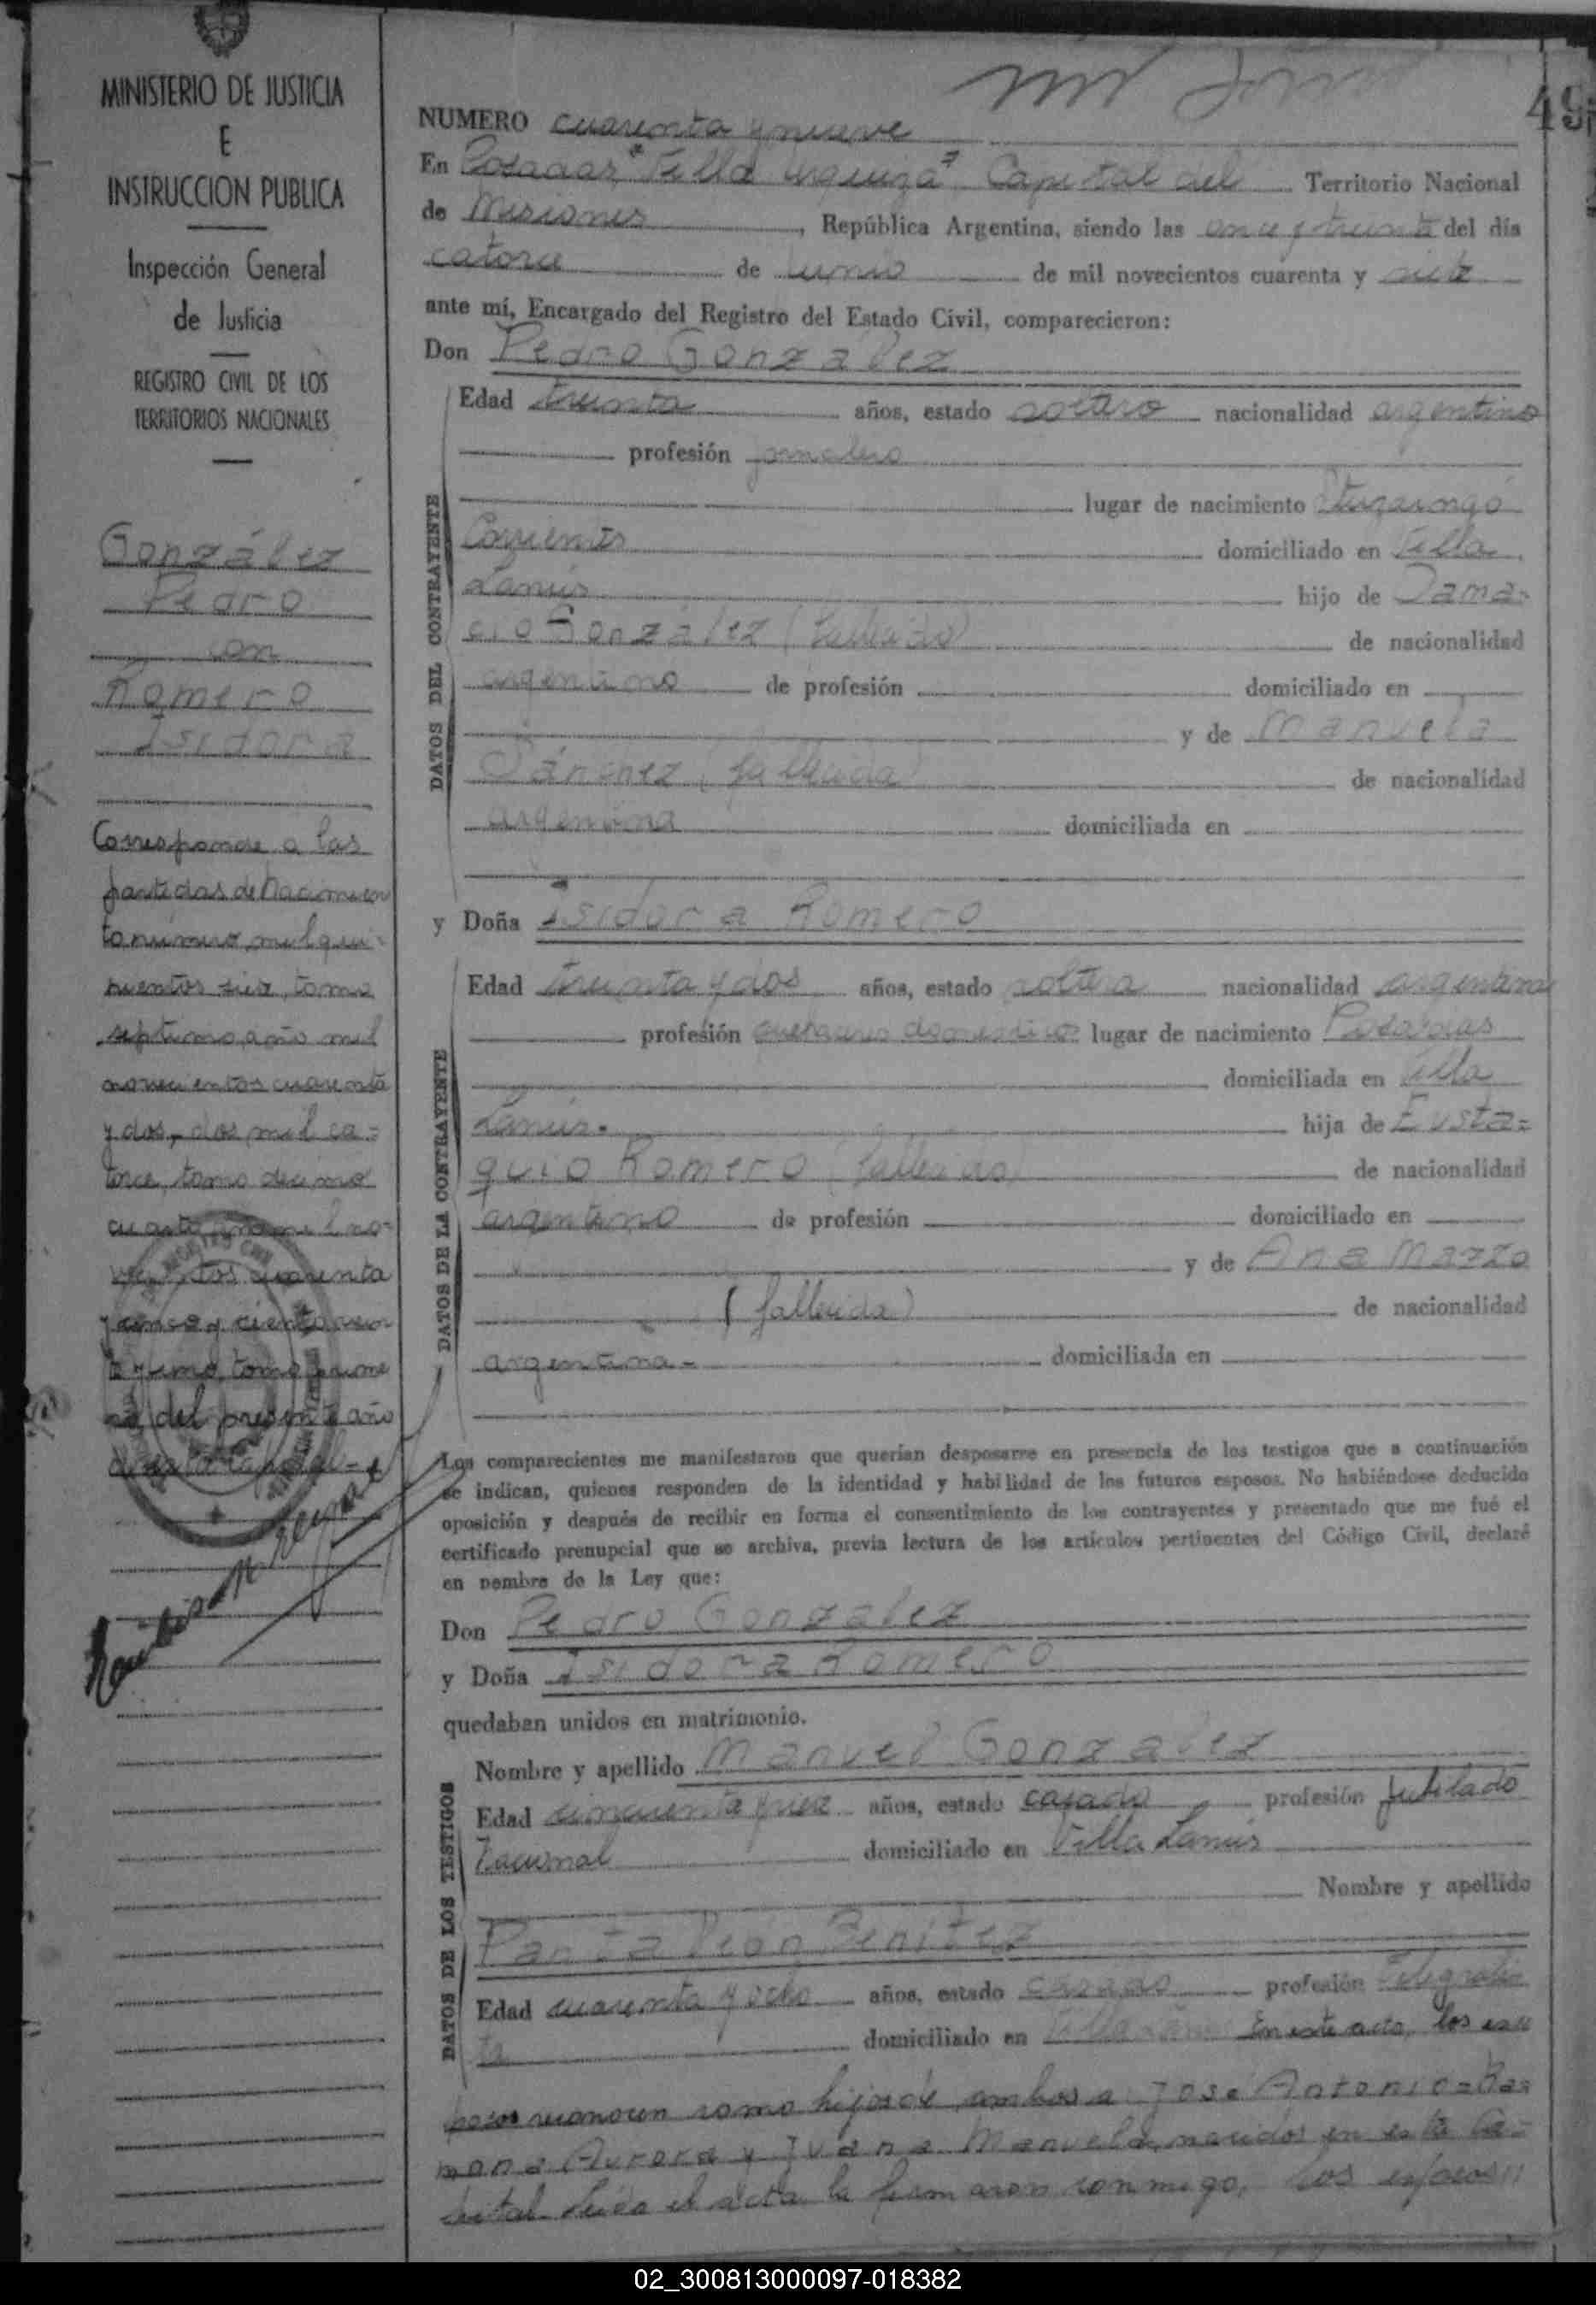 MINISTERIO DE JUSTICIA
E
INSTRUCCION PUBLICA
Inspección General
de Justicia
REGISTRO CIVIL DE LOS
TERRITORIOS NACIONALES
González
Pedro
con
Romero
Isidora
Corresponde a las
partidas de nacimien
to numero mil qui-
nientos seis, tomo
septimo, año mil
novecientos cuarenta
y dos, dos mil ca-
torce, tomo decimo
cuarto, año mil no-
vecientos cuarenta
y cinco y ciento
y uno, tomo prime
ro del presente año
49
NUMERO cuarenta y nueve
En Posadas "Villa Urquiza" Capital del Territorio Nacional
de Misiones, República Argentina, siendo las once y treinta del día
catorce de Junio de mil novecientos cuarenta y siete
ante mí, Encargado del Registro del Estado Civil, comparecieron:
Don Pedro González
DATOS DEL CONTRAYENTE
Edad treinta años, estado soltero nacionalidad argentino
profesión jornalero
lugar de nacimiento Ituzaingó
Corrientes domiciliado en Villa
Lanús hijo de Dama-
cio González (fallecido) de nacionalidad
argentino de profesión domiciliado en
y de Manuela
Sánchez (fallecida) de nacionalidad
argentina domiciliada en
y Doña Isidora Romero
DATOS DE LA CONTRAYENTE
Edad treinta y dos años, estado soltera nacionalidad argentina
profesión quehaceres domesticos lugar de nacimiento Posadas
domiciliada en Villa
Lanús. hija de Eusta=
quio Romero (fallecido) de nacionalidad
argentino de profesión domiciliado en
y de Ana Marzo
(fallecida) de nacionalidad
argentina - domiciliada en
Los comparecientes me manifestaron que querían desposarse en presencia de los testigos que a continuación
se indican, quienes responden de la identidad y habilidad de los futuros esposos. No habiéndose deducido
oposición y después de recibir en forma el consentimiento de los contrayentes y presentado que me fué el
certificado prenupcial que se archiva, previa lectura de los artículos pertinentes del Código Civil, declaré
en nombre de la Ley que:
Don Pedro González
y Doña Isidora Romero
quedaban unidos en matrimonio.
DATOS DE LOS TESTIGOS
Nombre y apellido Manuel González
Edad cincuenta y seis años, estado casado profesión Jubilado
Nacional domiciliado en Villa Lanús
Nombre y apellido
Pantaleón Benítez
Edad cuarenta y ocho años, estado casado profesión Telegrafis
ta domiciliado en Villa Lanús En este acto, los es"
posos reconocen como hijos de ambos a José Antonio = Ra=
mona Aurora y Juana Manuela, nacidos en esta Ca=
pital. Leída el acta la firmaron conmigo, los esposos"
02_300813000097-018382